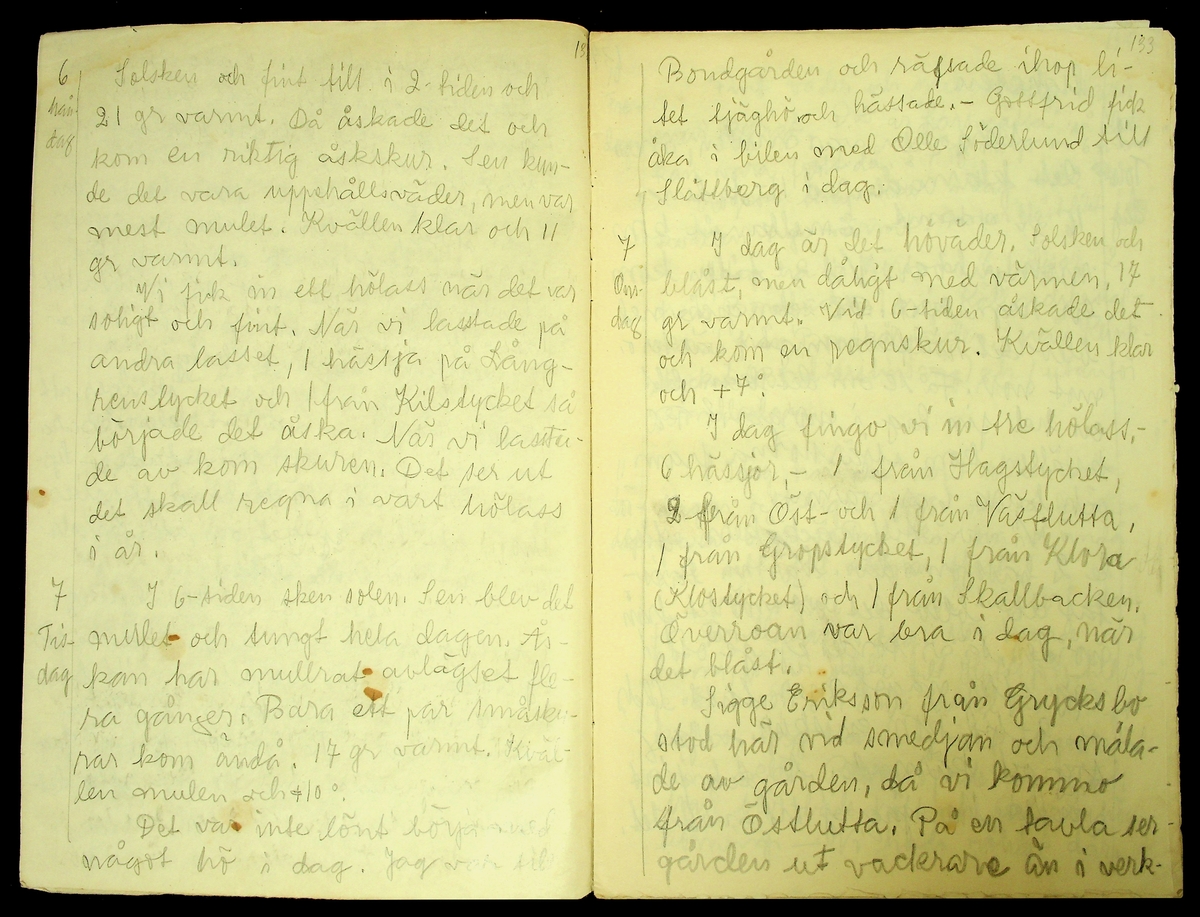 13
6
Mån-
dag
Solsken och fint till i 2-tiden och
21 gr varmt. Då åskade det och
kom en riktig åskskur. Sen kun-
de det vara uppehållsväder, men var
mest mulet. Kvällen klar och 11
gr varmt.
Vi fick in ett hölass när det var
soligt och fint. När vi lasstade på
andra lasset, 1 hässja på Lång-
renstycket och 1 från Kilstycket så
började det åska. När vi lasta-
de av kom skuren. Det ser ut
det skall regna i vårt hölass
i år.
7
Tis-
dag
I 6-tiden sken solen. Sen blev det
mulet och tungt hela dagen. Ås-
kan har mullrat avlägset fle-
ra gånger. Bara ett par småsku-
rar kom ändå. 17 gr varmt. Kväl-
len mulen och +10°.
Det var inte lönt börja med
något hö i dag. Jag var till
133
Bondgården och räfsade ihop li-
tet tjäghö och hässade. - Gottfrid fick
åka i bilen med Olle Söderlund till
Slättberg i dag.
7
Ons-
dag
I dag är det höväder. Solsken och
blåst, men dåligt med värmen, 17
gr varmt. Vid 6-tiden åskade det
och kom en regnskur. Kvällen klar
och +7°.
I dag fingo vi in tre hölass,-
6 hässjor, - 1 från Hagstycket,
2 från Öst- och 1 från Västlutta,
1 från Gropstycket, 1 från Klora
(Klostycket) och 1 från Skallbacken.
Överroan var bra i dag, när
det blåst.
Sigge Eriksson från Grycksbo
stod här vid smedjan och måla-
de av gården, då vi kommo
från Östlutta. På en tavla ser
gården ut vackrare än i verk-